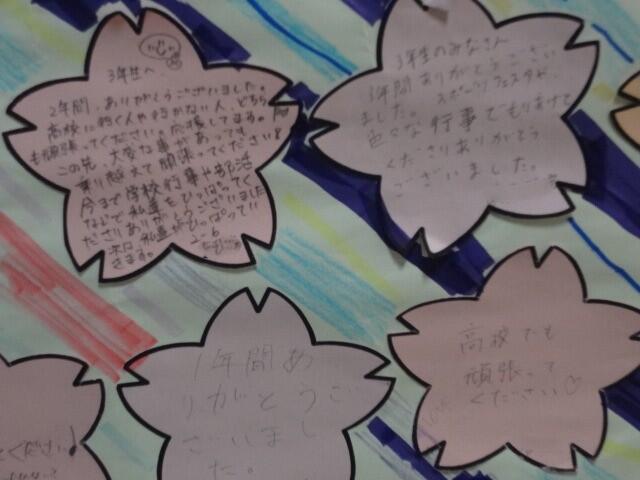 3年生へ
2年間、ありがとうございました。
高校に行く人や行かない人、どちら
も頑張ってください。応援してます。
この先、大変な事があっても、
乗り越えて頑張ってください!
今まで学校行事や部活
などで私達をひっぱってく
ださりありがとうございました
本日、私達がひっぱってい
きます。
2-6
3年生のみなさん
3年間ありがとうござい
ました。スポーツフェスタや、
色々な行事でもりあげて
くださりありがとう
ございました。
1年間あ
りがとうご
ざいまし
た。
高校でも
頑張って
ください♡
ください!